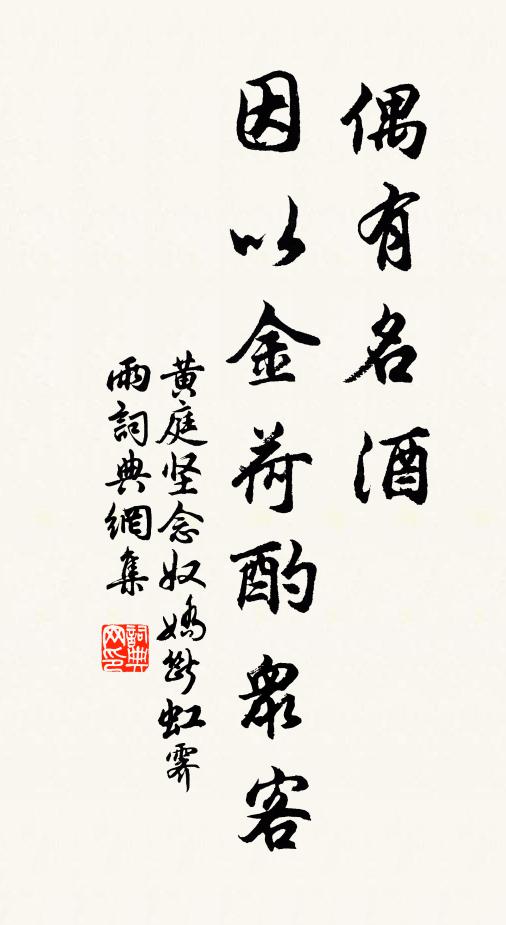 偶有名酒
因以金荷酌眾客
黄庭坚念奴嬌斷虹霽
雨詞典網集
詞典網印